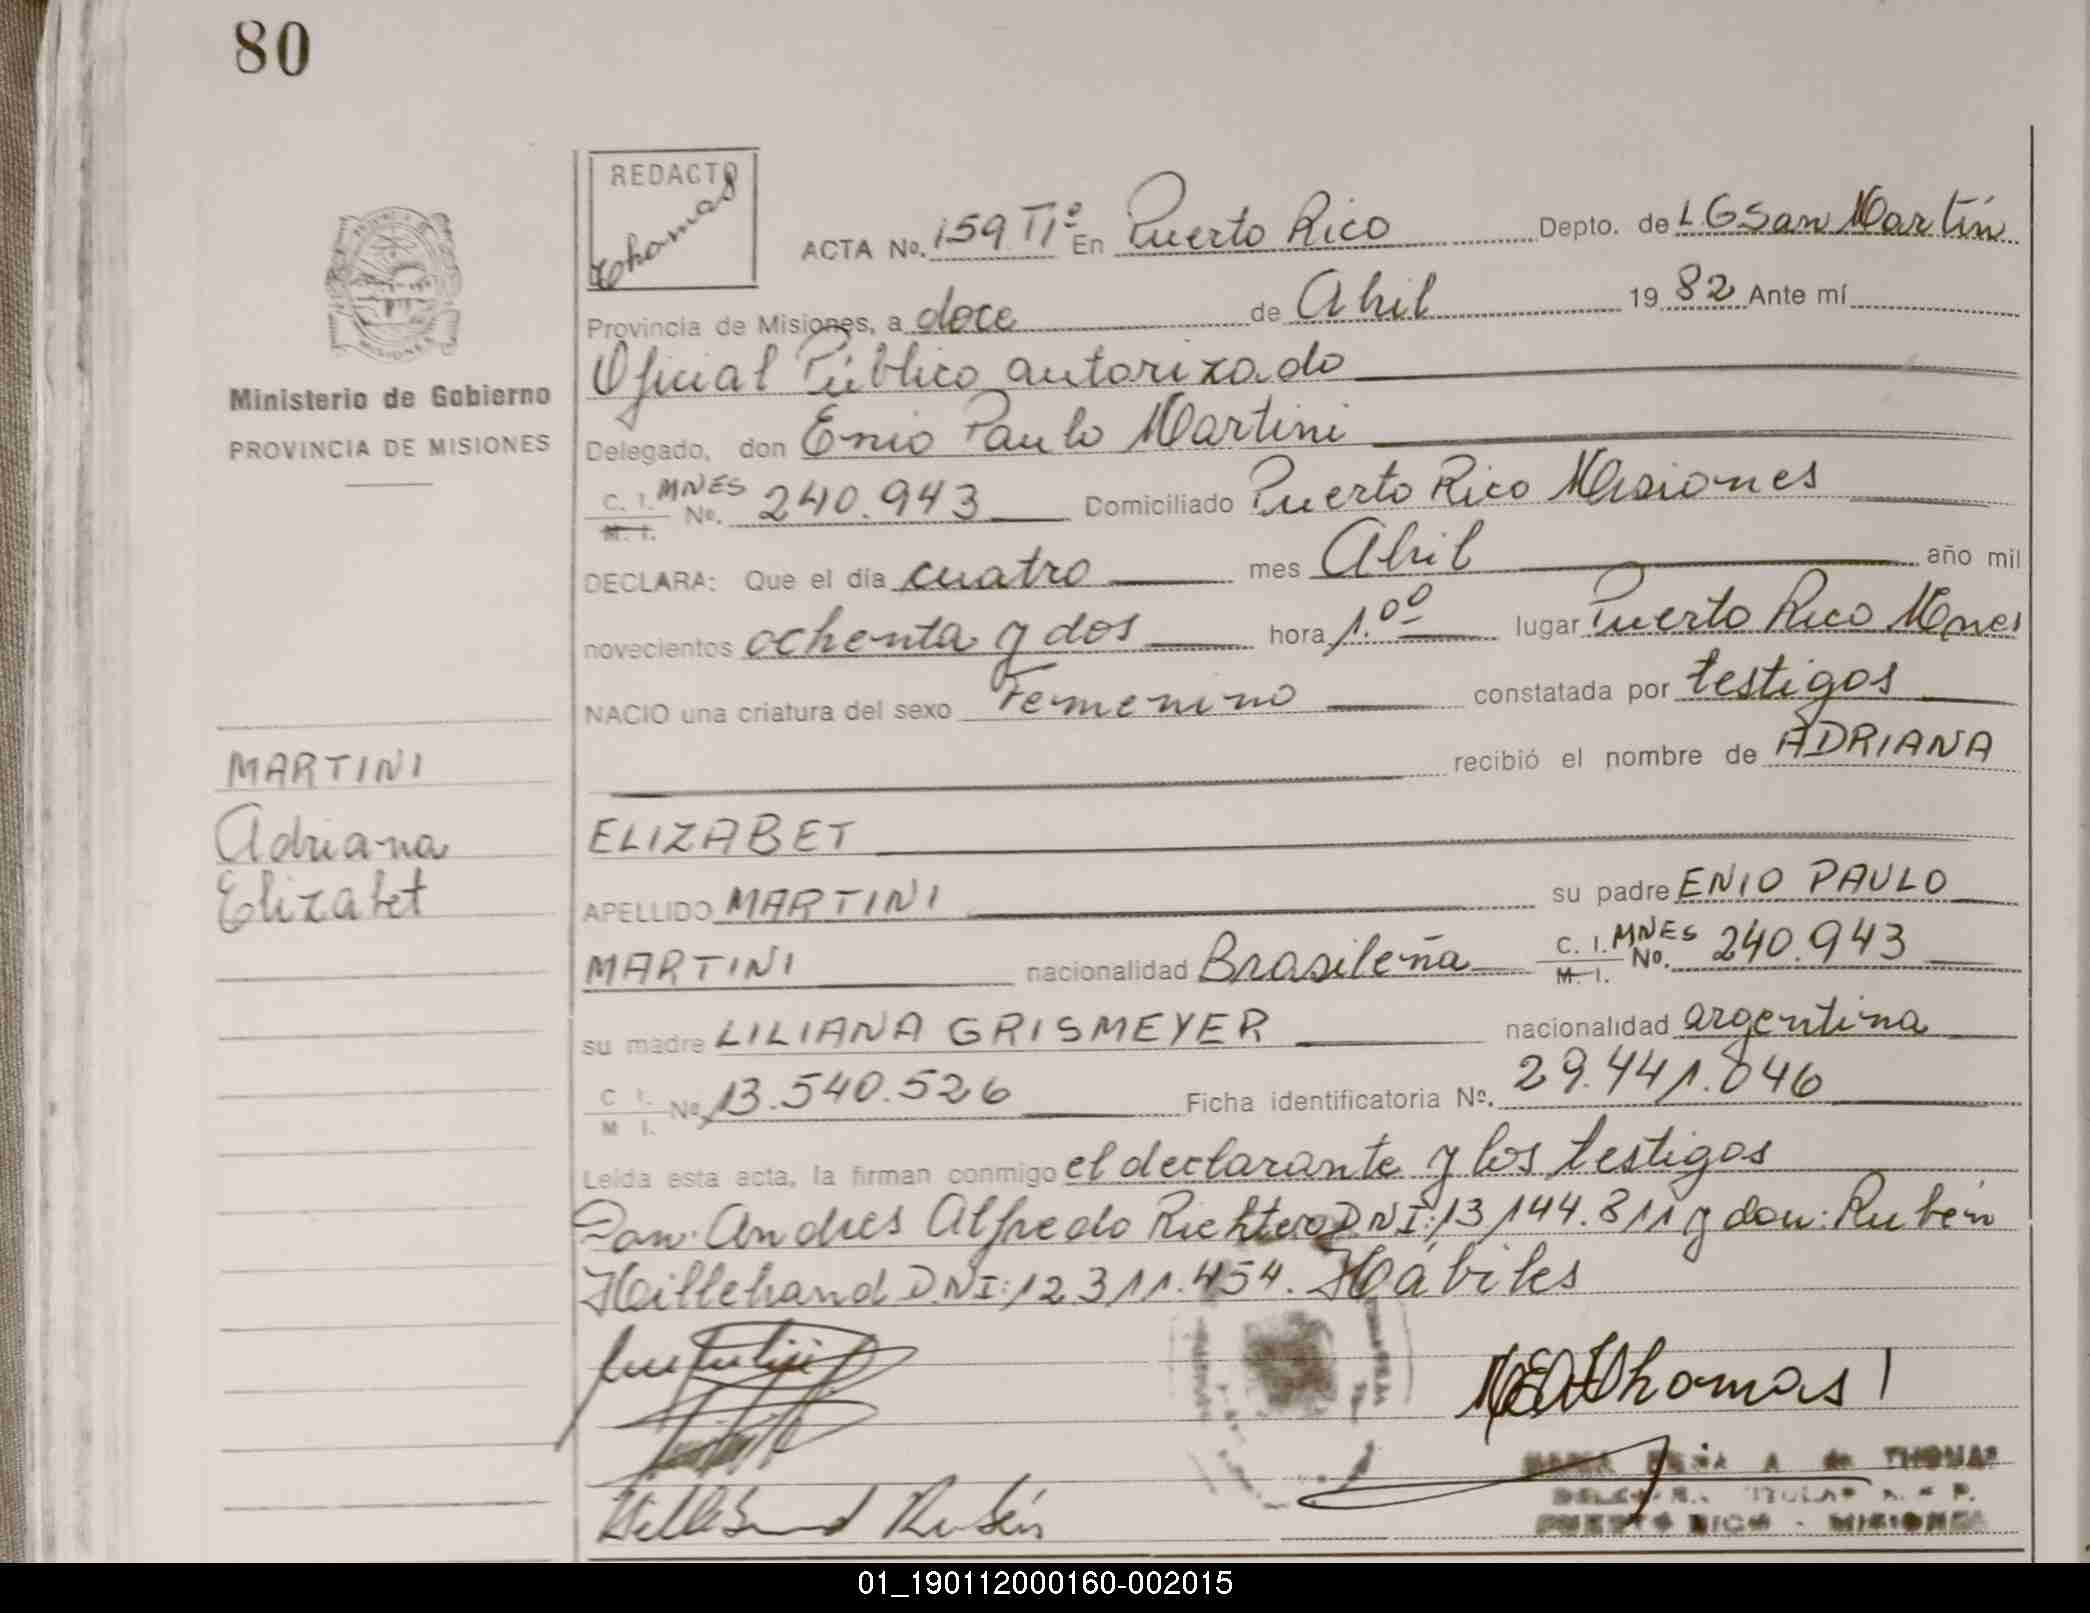 80
REDACTO
Thomas
ACTA No. 159 TIº En Puerto Rico Depto. de L G San Martín
Provincia de Misiones, a doce de Abril 1982 Ante mí
Oficial Público autorizado
Ministerio de Gobierno
PROVINCIA DE MISIONES
Delegado, don Enio Paulo Martini
C. I. M. I. MNES No. 240.943 Domiciliado Puerto Rico Misiones
DECLARA: Que el día cuatro mes Abril año mil
novecientos ochenta y dos hora 1.00 lugar Puerto Rico Mnes
NACIO una criatura del sexo Femenino constatada por testigos
recibió el nombre de ADRIANA
MARTINI
Adriana
Elizabet
ELIZABET
APELLIDO MARTINI su padre ENIO PAULO
MARTINI nacionalidad Brasileña C. I. M. I. MNES No. 240.943
su madre LILIANA GRISMEYER nacionalidad argentina
C I. M I. No. 13.540.526 Ficha identificatoria No. 29.441.046
Leída esta acta, la firman conmigo el declarante y los testigos
Don: Andres Alfredo Richter D.N.I: 13.144.811 y don: Rubén
Hillebrand D.N.I: 12.311.454. Hábiles
Thomas
Hillebrand Rubén
A de THOMAS
PUERTO RICO - MISIONES
01_190112000160-002015